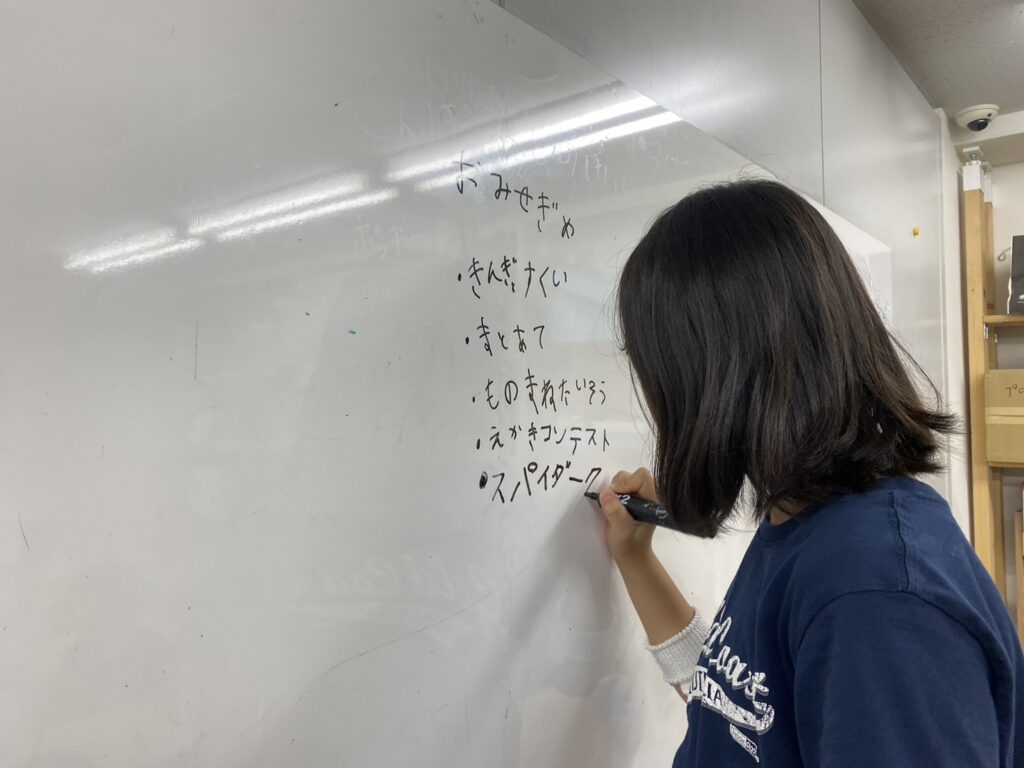 おみせぎめ
・きんぎょすくい
・まとあて
・ものまねたいそう
・えかきコンテスト
・スパイダーク